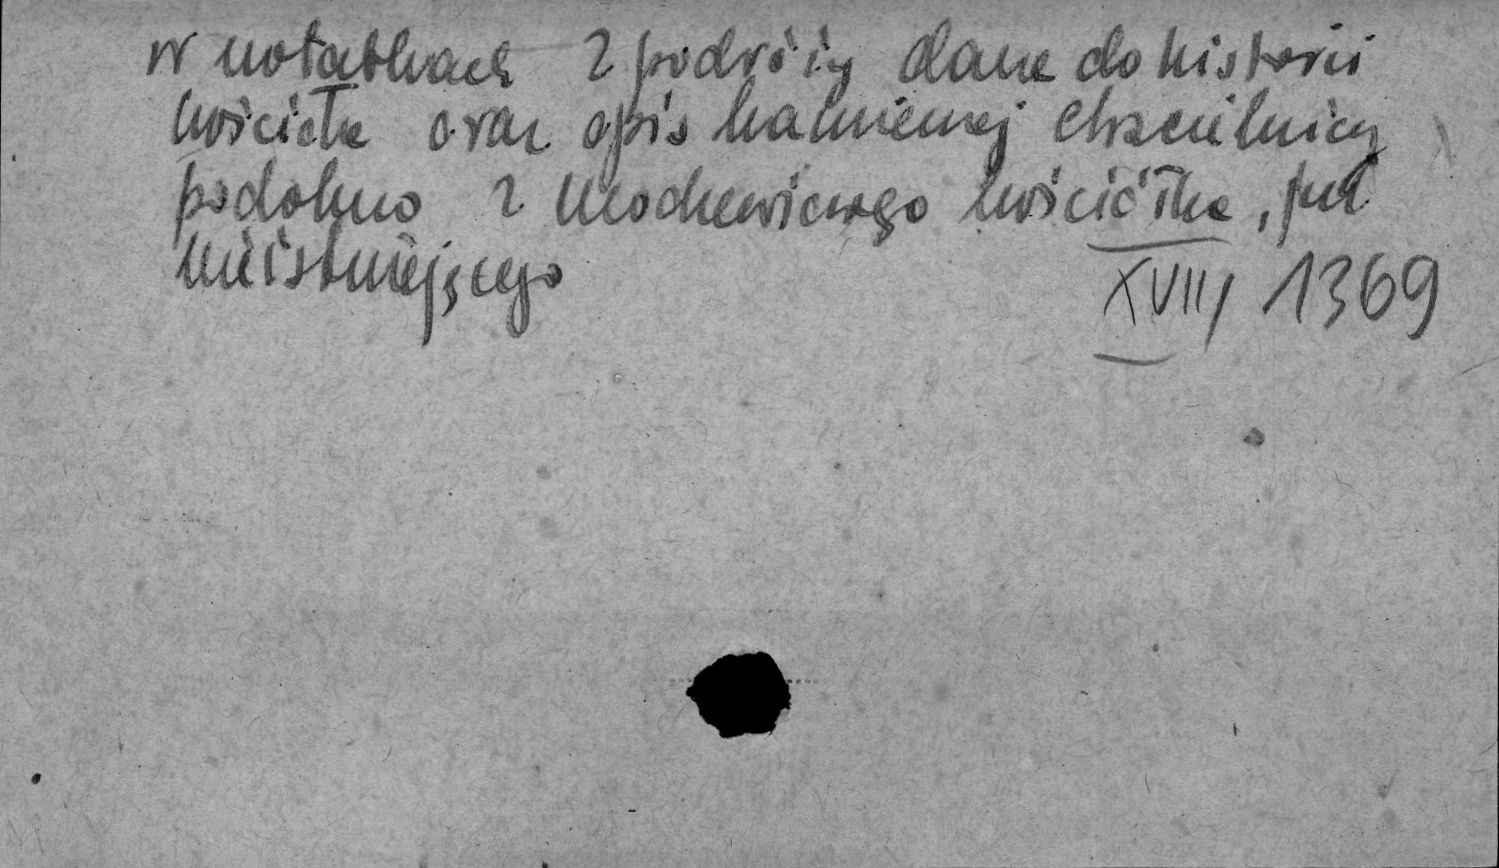 w notatkach z podróży dane do historii
kościoła oraz opis kamiennej chrzcielnicy
podobno z modrzewiowego kościółka, już
nieistniejącego
XVIII/1369